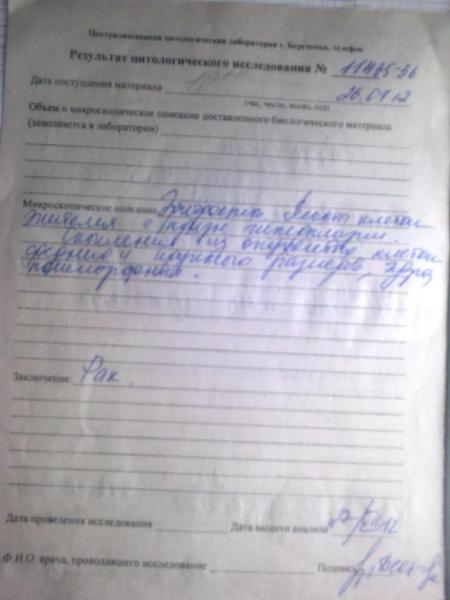 Централизованная цитологическая лаборатория г. Березовка, телефон
Результат цитологического исследования № 11475-36
Дата поступления материала
(час, число, месяц, год)
Объем и макроскопическое описание доставленного биологического материала
(заполняется в лаборатории)
Микроскопическое описание Эритроциты. Пласты клеток
эпителия с гиперплазии.
Скопления из опухолевых клеток
среднего и крупного размеров, ядра
полиморфные.
Заключение: Рак.
Дата проведения исследования Дата выдачи анализа
Ф.И.О. врача, проводившего исследование Подпись